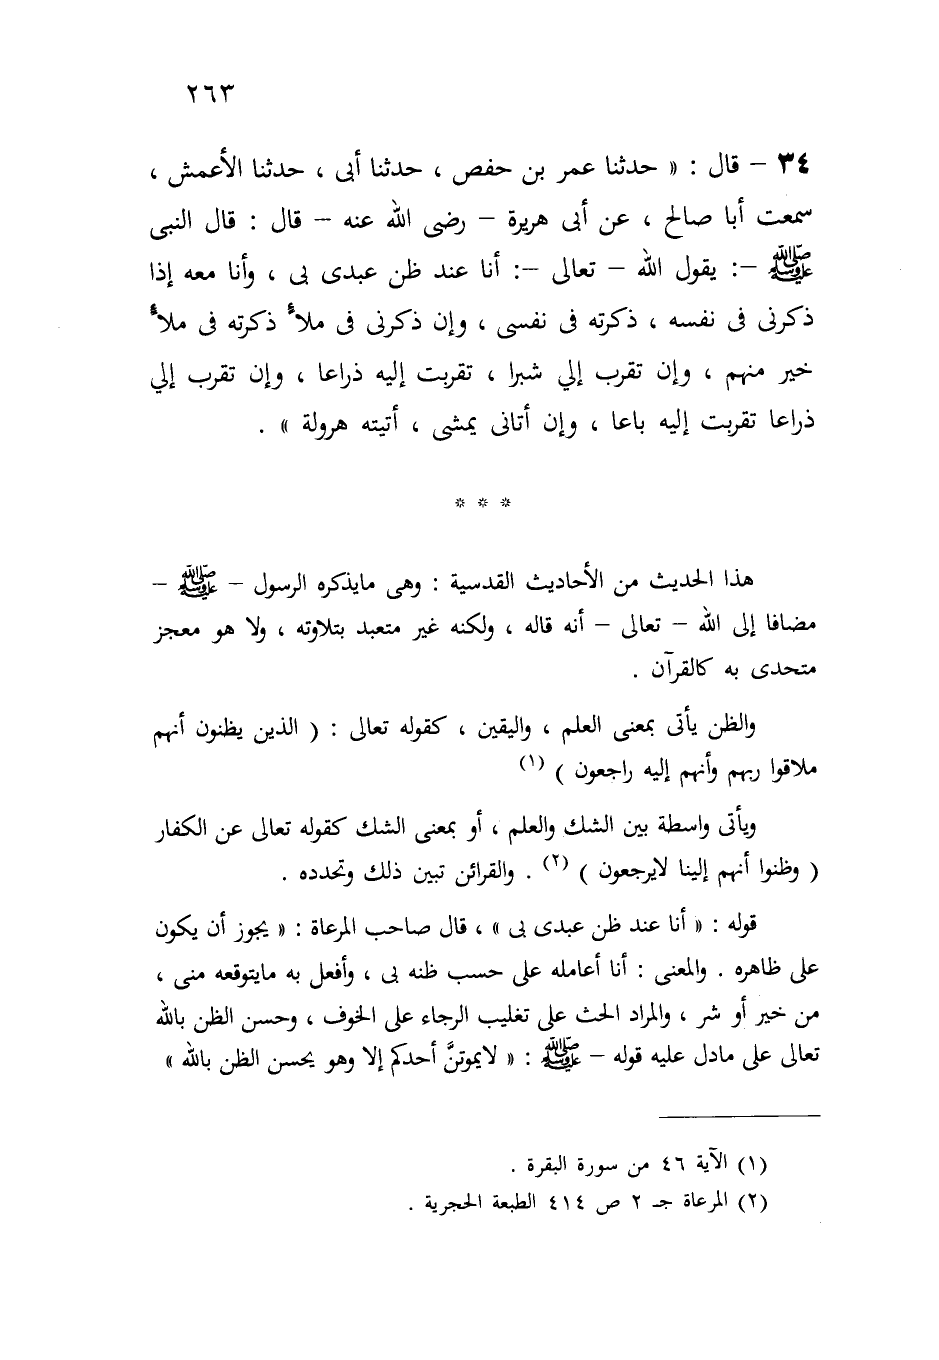 ٢٦٣
٣٤ – قال : « حدثنا عمر بن حفص ، حدثنا أبى ، حدثنا الأعمش ،
سمعت أبا صالح ، عن أبى هريرة – رضى الله عنه – قال : قال النبى
ﷺ –: يقول الله – تعالى –: أنا عند ظن عبدى بى ، وأنا معه إذا
ذكرنى فى نفسه ، ذكرته فى نفسى ، وإن ذكرنى فى ملأ ذكرته فى ملأ
خير منهم ، وإن تقرب إلي شبرا ، تقربت إليه ذراعا ، وإن تقرب إلي
ذراعا تقربت إليه باعا ، وإن أتانى يمشى ، أتيته هرولة » .
* * *
هذا الحديث من الأحاديث القدسية : وهى مايذكره الرسول – ﷺ –
مضافا إلى الله – تعالى – أنه قاله ، ولكنه غير متعبد بتلاوته ، ولا هو معجز
متحدى به كالقرآن .
والظن يأتى بمعنى العلم ، واليقين ، كقوله تعالى : ( الذين يظنون أنهم
ملاقوا ربهم وأنهم إليه راجعون ) (١)
ويأتى واسطة بين الشك والعلم ، أو بمعنى الشك كقوله تعالى عن الكفار
( وظنوا أنهم إلينا لايرجعون ) (٢) . والقرائن تبين ذلك وتحدده .
قوله : « أنا عند ظن عبدى بى » ، قال صاحب المرعاة : « يجوز أن يكون
على ظاهره . والمعنى : أنا أعامله على حسب ظنه بى ، وأفعل به مايتوقعه منى ،
من خير أو شر ، والمراد الحث على تغليب الرجاء على الخوف ، وحسن الظن بالله
تعالى على مادل عليه قوله – ﷺ : « لايموتنَّ أحدكم إلا وهو يحسن الظن بالله »
(١) الآية ٤٦ من سورة البقرة .
(٢) المرعاة جـ ٢ ص ٤١٤ الطبعة الحجرية .